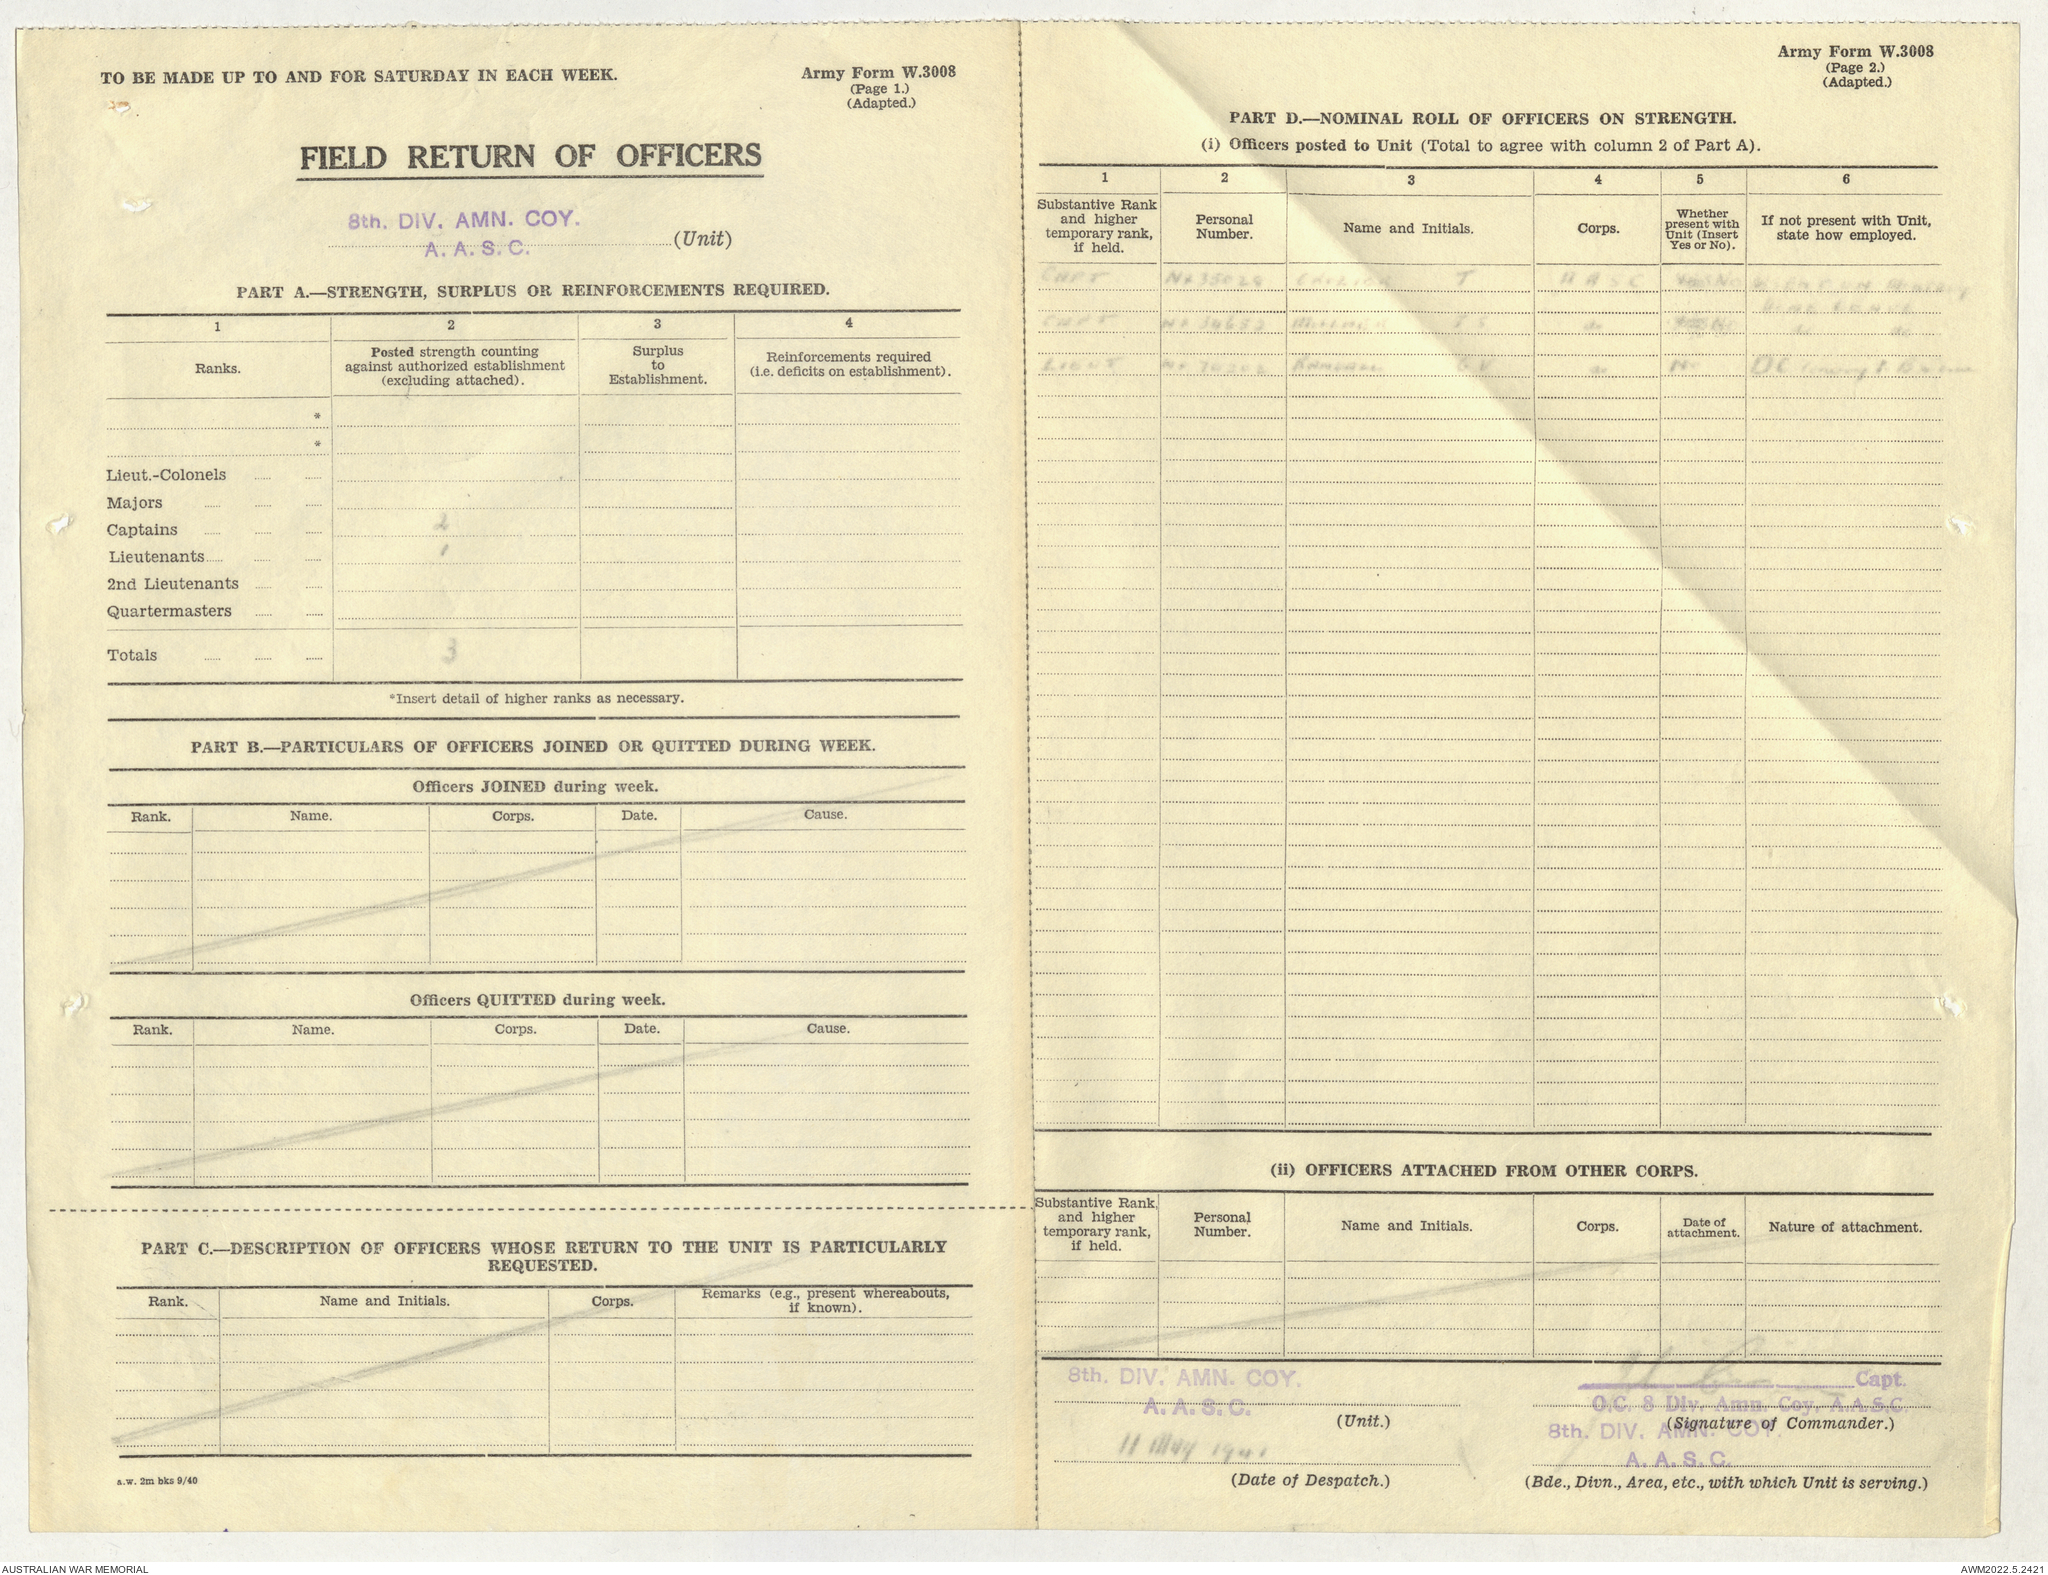 TO BE MADE UP TO AND FOR SATURDAY IN EACH WEEK.
Army Form W.3008
(Page 1.)
(Adapted.)
FIELD RETURN OF OFFICERS
8th. DIV. AMN. COY.
A. A. S. C.
(Unit)
PART A.—STRENGTH, SURPLUS OR REINFORCEMENTS REQUIRED.
1 2 3 4
Ranks.
Posted strength counting
against authorized establishment
(excluding attached).
Surplus
to
Establishment.
Reinforcements required
(i.e. deficits on establishment).
*
*
Lieut.-Colonels
Majors
Captains 2
Lieutenants 1
2nd Lieutenants
Quartermasters
Totals 3
*Insert detail of higher ranks as necessary.
PART B.—PARTICULARS OF OFFICERS JOINED OR QUITTED DURING WEEK.
Officers JOINED during week.
Rank. Name. Corps. Date. Cause.
Officers QUITTED during week.
Rank. Name. Corps. Date. Cause.
PART C.—DESCRIPTION OF OFFICERS WHOSE RETURN TO THE UNIT IS PARTICULARLY
REQUESTED.
Rank. Name and Initials. Corps.
Remarks (e.g., present whereabouts,
if known).
a.w. 2m bks 9/40
Army Form W.3008
(Page 2.)
(Adapted.)
PART D.—NOMINAL ROLL OF OFFICERS ON STRENGTH.
(i) Officers posted to Unit (Total to agree with column 2 of Part A).
1 2 3 4 5 6
Substantive Rank
and higher
temporary rank,
if held.
Personal
Number.
Name and Initials.
Corps.
Whether
present with
Unit (Insert
Yes or No).
If not present with Unit,
state how employed.
CAPT T AASC No
CAPT
LIEUT No
(ii) OFFICERS ATTACHED FROM OTHER CORPS.
Substantive Rank,
and higher
temporary rank,
if held.
Personal
Number.
Name and Initials.
Corps.
Date of
attachment.
Nature of attachment.
8th. DIV. AMN. COY.
A. A. S. C.
(Unit.)
11 May 1941
(Date of Despatch.)
Capt.
O.C. 8 Div. Amn. Coy. A.A.S.C.
(Signature of Commander.)
8th. DIV. AMN. COY.
A. A. S. C.
(Bde., Divn., Area, etc., with which Unit is serving.)
AUSTRALIAN WAR MEMORIAL
AWM2022.5.2421